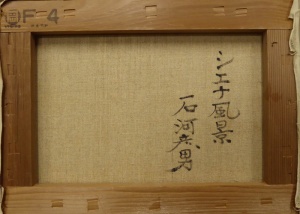 F-4
シエナ風景
石河彦男